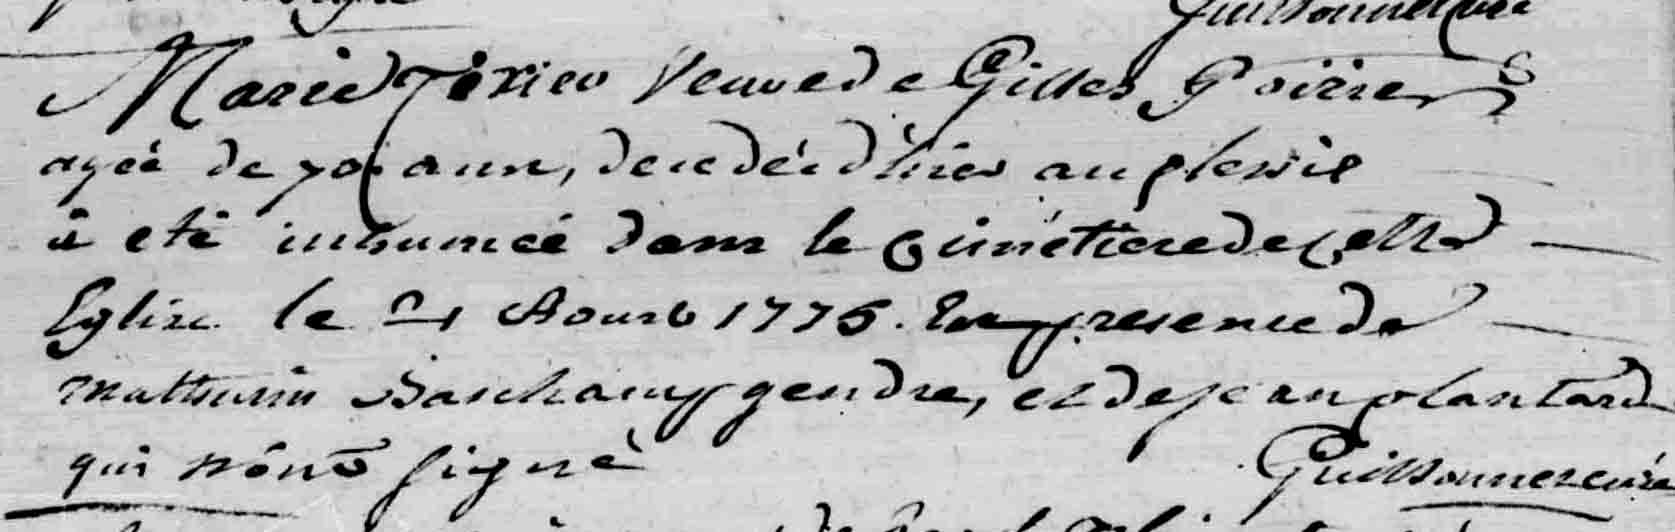 Guillonnez curé
Marie Texier Veuve de Gilles Poirier
agée de 70 ans, decedée d'hier au plessis
à eté inhumée dans le Cimétiere de Cette
Eglise le 21 Aoust 1775. En presence de
Mathurin Baschamp gendre, et de jean plantard
qui n'ont signé Guillonnez curé